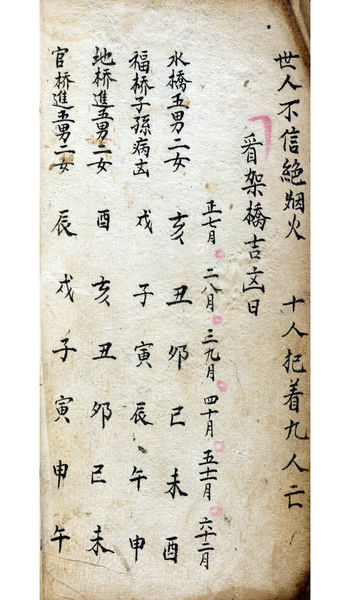 世人不信絶烟火 十人犯着九人亡
看架橋吉凶日
正七月 二八月 三九月 四十月 五十一月 六十二月
水橋五男二女 亥 丑 卯 巳 未 酉
福桥子孫病凶 戌 子 寅 辰 午 申
地桥進五男二女 酉 亥 丑 卯 巳 未
官桥進五男二女 辰 戌 子 寅 申 午